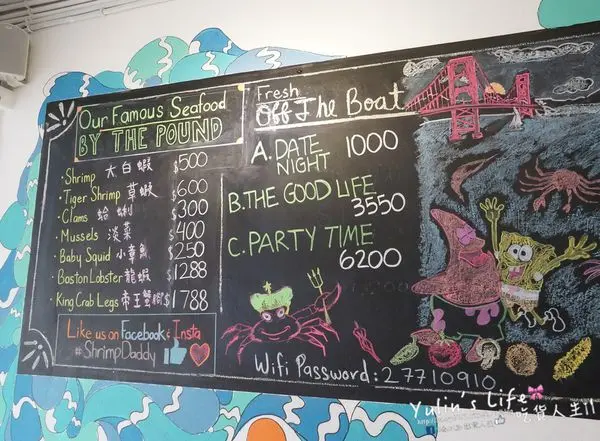 Our Famous Seafood
BY THE POUND
· Shrimp 大白蝦 $500
· Tiger Shrimp 草蝦 $600
· Clams 蛤蜊 $300
· Mussels 淡菜 $400
· Baby Squid 小章魚 $250
· Boston Lobster 龍蝦 $1288
· King Crab Legs 帝王蟹腳 $1788
Like us on Facebook & Insta
#ShrimpDaddy
Fresh
Off The Boat
A. DATE NIGHT 1000
B. THE GOOD LIFE
3550
C. PARTY TIME
6200
Wifi Password: 27710910
Yulin's Life
吃貨人生!!